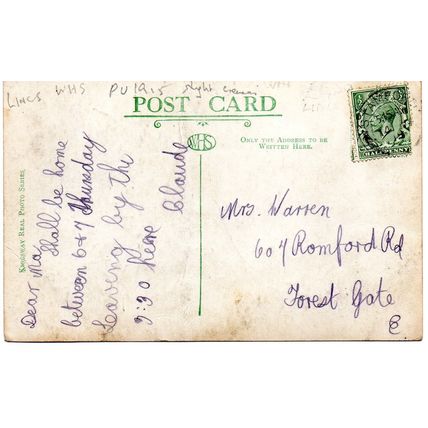 LINCS WHS PU 1915 slight creases
POST CARD
WHS
ONLY THE ADDRESS TO BE
WRITTEN HERE.
KINGSWAY REAL PHOTO SERIES
Dear Ma
Shall be home
between 6 & 7 Thursday
Leaving by the
3:30 here Claude
Mrs. Warren
607 Romford Rd
Forest Gate
E